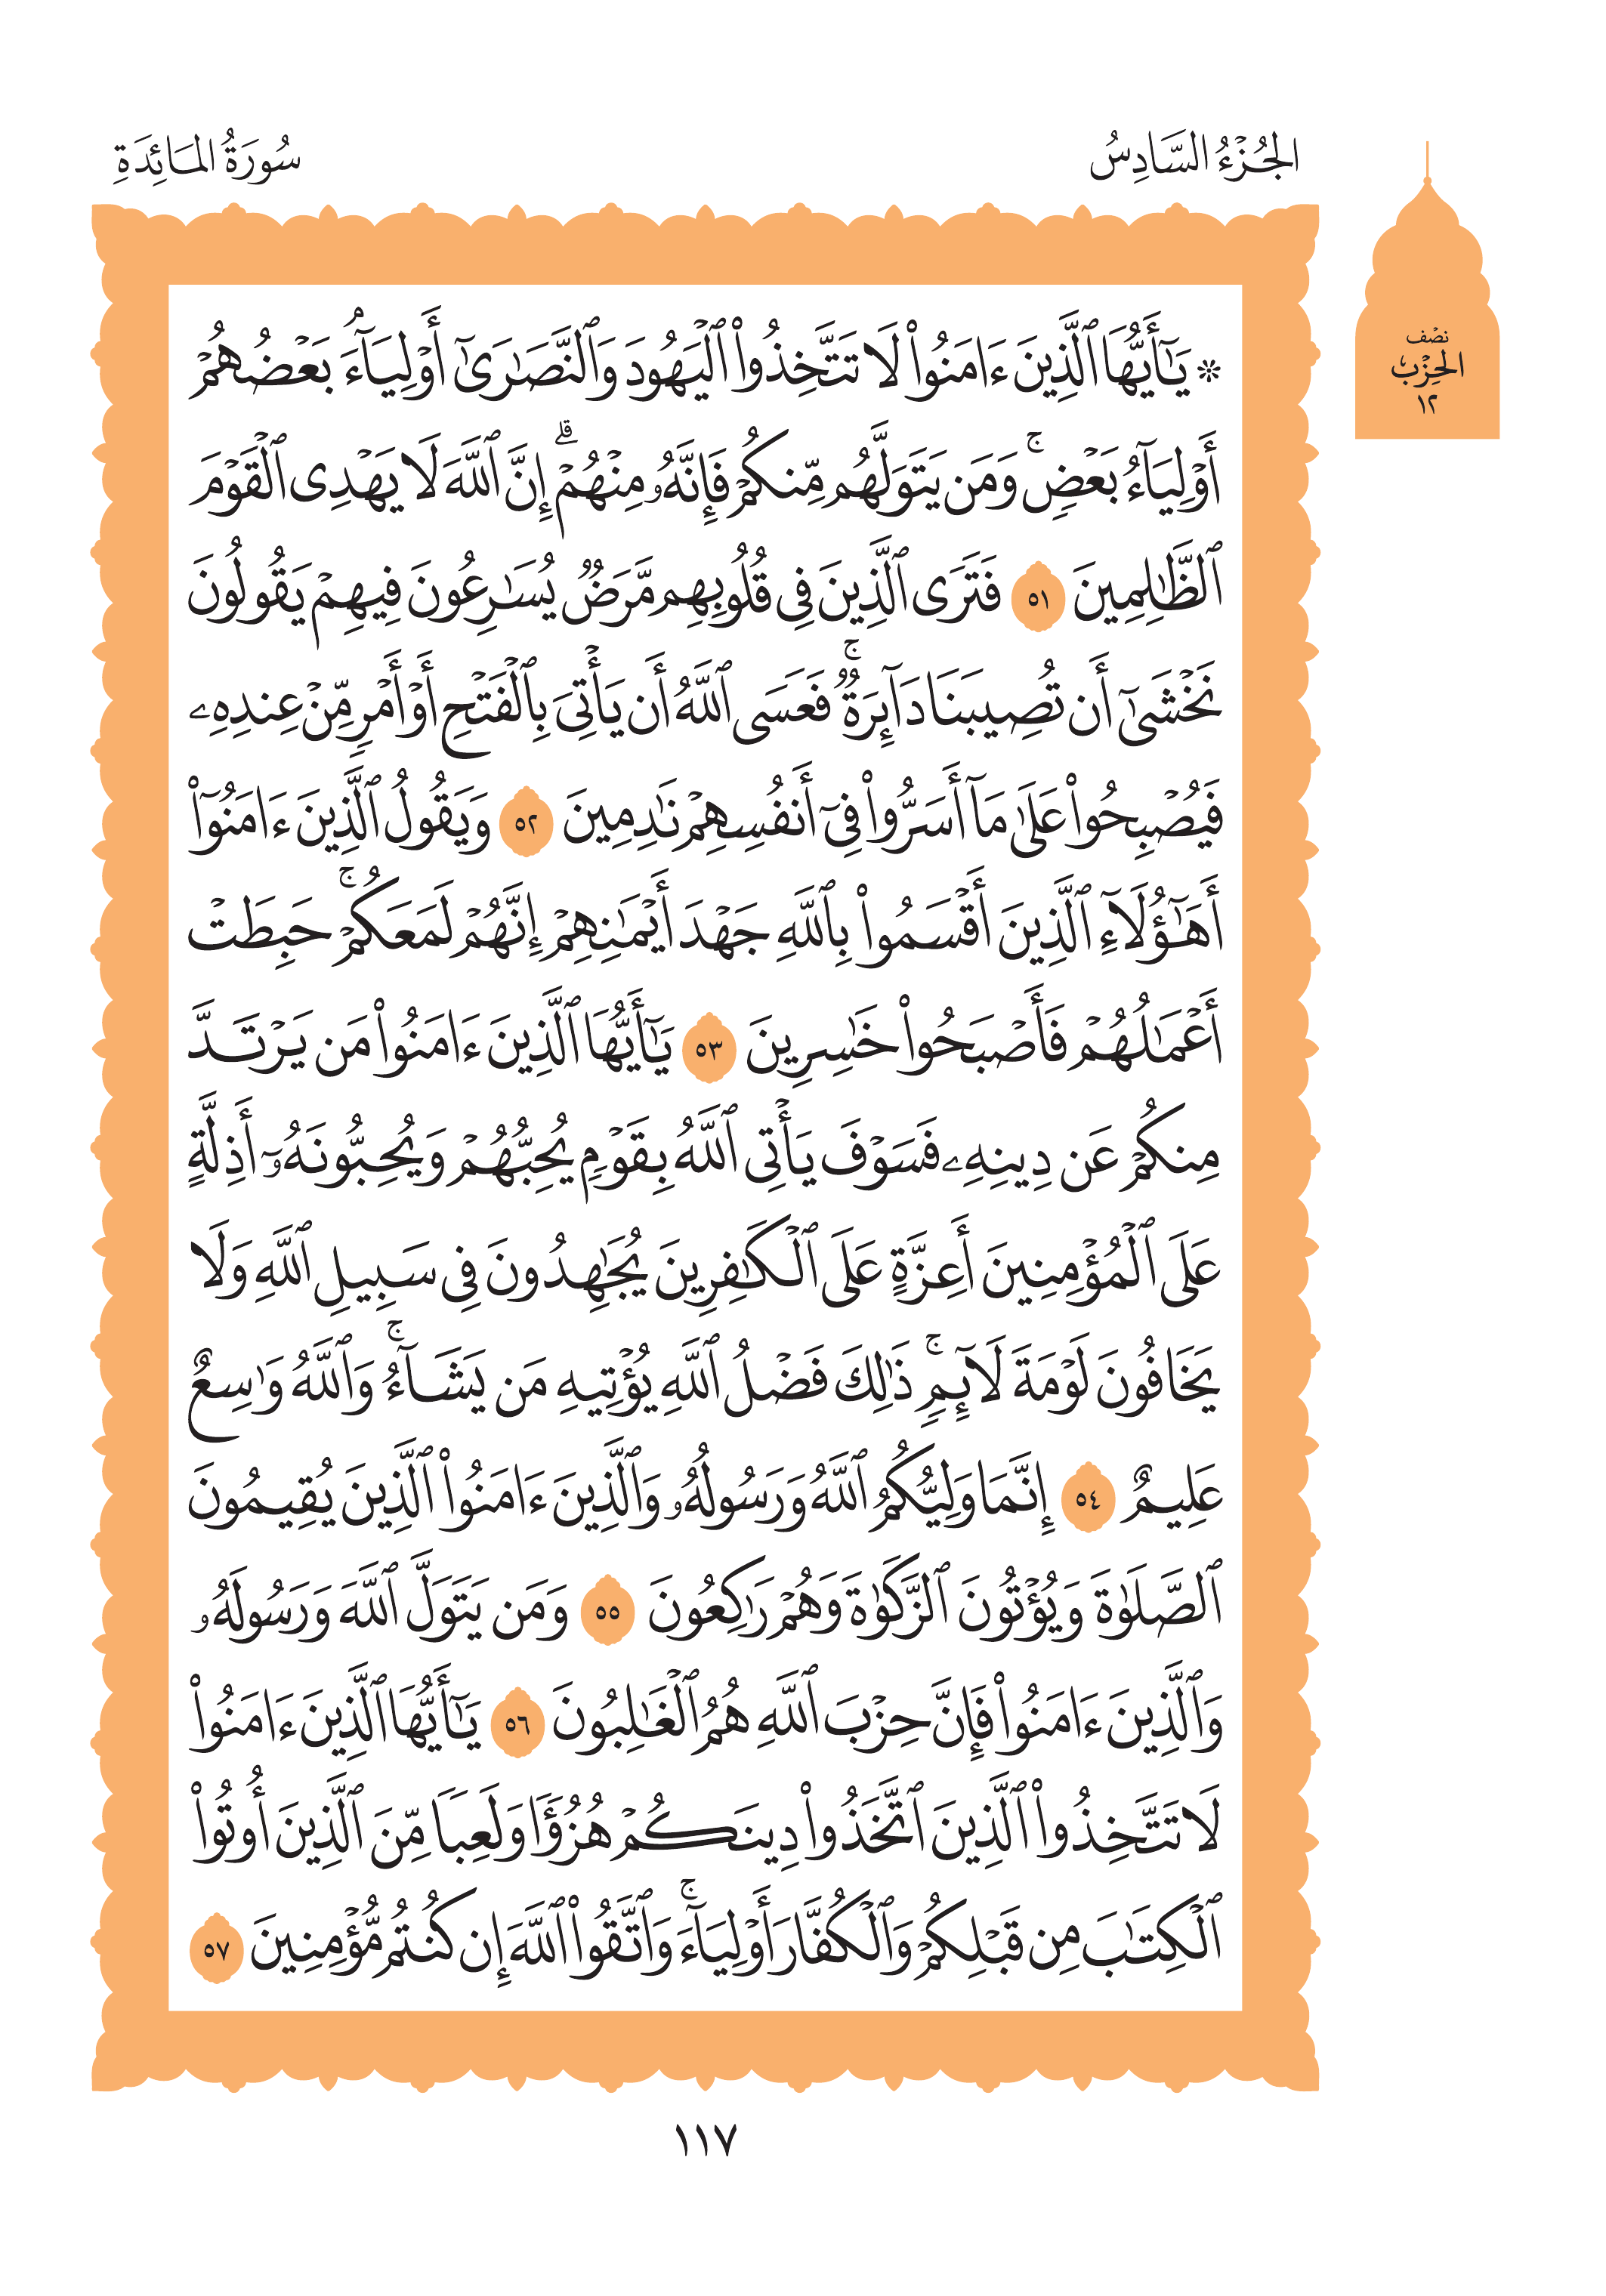 الجُزْءُ السَّادِسُ
سُورَةُ المَائِدَةِ
نصْف
الحِزْب
١٢
۞ يَٰٓأَيُّهَا ٱلَّذِينَ ءَامَنُوا۟ لَا تَتَّخِذُوا۟ ٱلْيَهُودَ وَٱلنَّصَٰرَىٰٓ أَوْلِيَآءَۘ بَعْضُهُمْ
أَوْلِيَآءُ بَعْضٍۚ وَمَن يَتَوَلَّهُم مِّنكُمْ فَإِنَّهُۥ مِنْهُمْۗ إِنَّ ٱللَّهَ لَا يَهْدِى ٱلْقَوْمَ
ٱلظَّٰلِمِينَ ٥١ فَتَرَى ٱلَّذِينَ فِى قُلُوبِهِم مَّرَضٌ يُسَٰرِعُونَ فِيهِمْ يَقُولُونَ
نَخْشَىٰٓ أَن تُصِيبَنَا دَآئِرَةٌۚ فَعَسَى ٱللَّهُ أَن يَأْتِىَ بِٱلْفَتْحِ أَوْ أَمْرٍ مِّنْ عِندِهِۦ
فَيُصْبِحُوا۟ عَلَىٰ مَآ أَسَرُّوا۟ فِىٓ أَنفُسِهِمْ نَٰدِمِينَ ٥٢ وَيَقُولُ ٱلَّذِينَ ءَامَنُوٓا۟
أَهَٰٓؤُلَآءِ ٱلَّذِينَ أَقْسَمُوا۟ بِٱللَّهِ جَهْدَ أَيْمَٰنِهِمْ إِنَّهُمْ لَمَعَكُمْۚ حَبِطَتْ
أَعْمَٰلُهُمْ فَأَصْبَحُوا۟ خَٰسِرِينَ ٥٣ يَٰٓأَيُّهَا ٱلَّذِينَ ءَامَنُوا۟ مَن يَرْتَدَّ
مِنكُمْ عَن دِينِهِۦ فَسَوْفَ يَأْتِى ٱللَّهُ بِقَوْمٍ يُحِبُّهُمْ وَيُحِبُّونَهُۥٓ أَذِلَّةٍ
عَلَى ٱلْمُؤْمِنِينَ أَعِزَّةٍ عَلَى ٱلْكَٰفِرِينَ يُجَٰهِدُونَ فِى سَبِيلِ ٱللَّهِ وَلَا
يَخَافُونَ لَوْمَةَ لَآئِمٍۚ ذَٰلِكَ فَضْلُ ٱللَّهِ يُؤْتِيهِ مَن يَشَآءُۚ وَٱللَّهُ وَٰسِعٌ
عَلِيمٌ ٥٤ إِنَّمَا وَلِيُّكُمُ ٱللَّهُ وَرَسُولُهُۥ وَٱلَّذِينَ ءَامَنُوا۟ ٱلَّذِينَ يُقِيمُونَ
ٱلصَّلَوٰةَ وَيُؤْتُونَ ٱلزَّكَوٰةَ وَهُمْ رَٰكِعُونَ ٥٥ وَمَن يَتَوَلَّ ٱللَّهَ وَرَسُولَهُۥ
وَٱلَّذِينَ ءَامَنُوا۟ فَإِنَّ حِزْبَ ٱللَّهِ هُمُ ٱلْغَٰلِبُونَ ٥٦ يَٰٓأَيُّهَا ٱلَّذِينَ ءَامَنُوا۟
لَا تَتَّخِذُوا۟ ٱلَّذِينَ ٱتَّخَذُوا۟ دِينَكُمْ هُزُوًا وَلَعِبًا مِّنَ ٱلَّذِينَ أُوتُوا۟
ٱلْكِتَٰبَ مِن قَبْلِكُمْ وَٱلْكُفَّارَ أَوْلِيَآءَۚ وَٱتَّقُوا۟ ٱللَّهَ إِن كُنتُم مُّؤْمِنِينَ ٥٧
١١٧